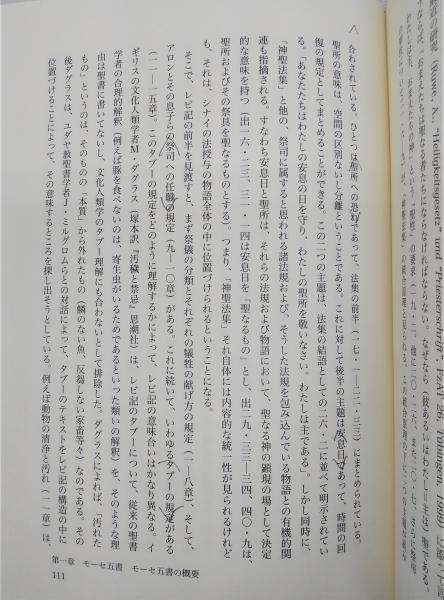 八　合わされている。ひとつは聖所への恐れであって、法集の前半(一七・一―二二・三三)にまとめられる。
聖所の意味は、空間の区別ないし分離ということである。これに対して後半の主題は安息日であって、時間の回
復の規定としてまとめることができる。この二つの主題は、法集の結語としての二六・二に並べて明示されてい
る。「あなたたちはわたしの安息の日を守り、わたしの聖所を敬いなさい。わたしは主である」。しかし同時に、
「神聖法集」と他の、祭司に属すると思われる諸法規および、そうした法規を包み込んでいる物語との有機的関
連も指摘される。すなわち安息日と聖所は、それらの法規および物語において、聖なる神の顕現の場として決定
的な意味を持つ(出一六・二三、三一・一四は安息日を「聖なるもの」とし、出二九・三三―三四、四〇・九は、
聖所およびその祭具を聖なるものとする)。つまり、「神聖法集」それ自体には内容的な統一性が見られるけれど
も、それは、シナイの法授与の物語全体の中に位置づけられるということになる。
そこで、レビ記の前半を見渡すと、まず祭儀の分類とそれぞれの犠牲の献げ方の規定(一―八章)、そして、
アロンとその息子らの祭司への任職の規定(九―一〇章)がある。これに続いて、いわゆるタブーの規定がある
(一一―一五章)。このタブーの規定をどのように理解するかによって、レビ記の意味合いはかなり異なる。イ
ギリスの文化人類学者M・ダグラス(塚本訳『汚穢と禁忌』思潮社)は、レビ記のタブーについて、従来の聖書
学者の合理的解釈(例えば豚を食べないのは、寄生虫がいるためであるといった類いの解釈)を、そのような理
由は聖書に書いてないし、文化人類学のタブー理解にも合わないとして排除した。ダグラスによれば、「汚れた
もの」というのは、そのものの「本質」から外れたもの(鱗のない魚、反芻しない家畜等々)なのである。その
後ダグラスは、ユダヤ教聖書学者J・ミルグロムらとの対話によって、タブーのテキストをレビ記の構造の中に
位置づけることによって、その意味するところを探し出そうとしている。例えば動物の清浄と汚れ(一一章)は、
第一章　モーセ五書　モーセ五書の概要
111